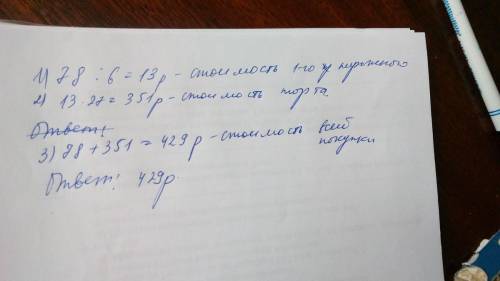 1) 78 : 6 = 13р - стоимость 1-го пирожного
2) 13 · 27 = 351р - стоимость торта
Ответ:
3) 78 + 351 = 429р - стоимость всей покупки
Ответ: 429р